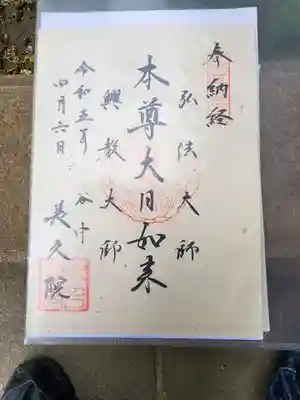 奉納経
弘法大師
本尊大日如来
興教大師
令和五年
四月六日
谷中
長久院